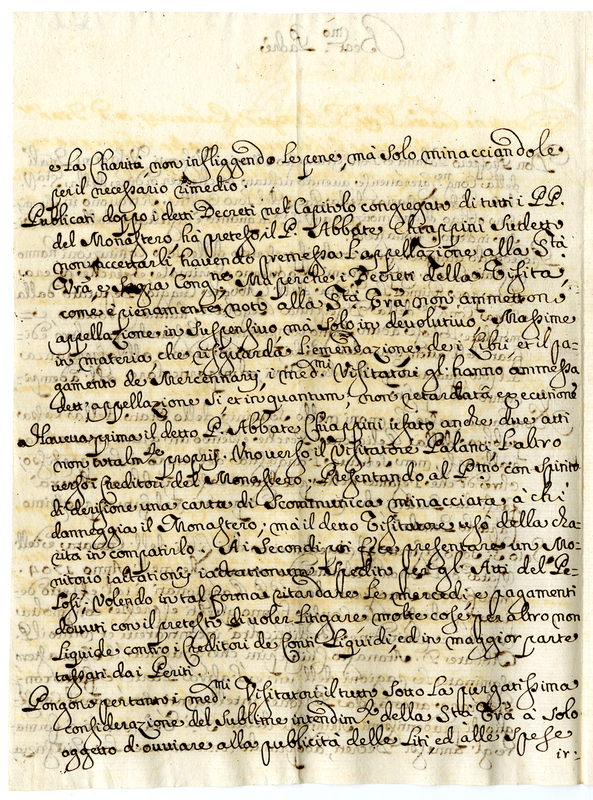 e La Charità, non infliggendo Le pene, mà solo minacciandole
per il necessario rimedio.
Publicati doppo i detti Decreti nel Capitolo congregato di tutti i PP.
del Monastero, hà preteso il P. Abbate Chiappini sudetto
non accettarli, havendo premessa L'appellazione alla Stà
Vrã, e Sagra Congne. Mà perche i Decreti della Visita,
come è pienamente noto alla Stà Vrã, non ammettono
appellazione in suspensivo mà solo in devolutivo. Massime
in materia che risguarda L'emendazione de i Libri, et il pa-
gamento de Mercennarij, i medmi Visitatori gl'hanno ammessa
dett'appellazione si et in quantum, non retardata executione
Haveva prima il detto P. Abbate Chiappini usato anche due atti
non totalmte proprij. Uno verso il Visitatore Palanti, L'altro
verso i Creditori del Monastero. Presentando al Pmo con spirito
di derisione una carta di Scommunica minacciata à chi
danneggia il Monastero; mà il detto Visitatore usò della cha-
rità in compatirlo. A i Secondi poi fece presentare un Mo-
nitorio iactationis iactationum spedito per gl'Atti del Pe-
losi; Volendo in tal forma ritardare Le mercedi e pagamenti
dovuti con il pretesto di voler Litigare molte cose per altro non
Liquide contro i Creditori de Conti Liquidi, ed in maggior parte
tassati dai Periti.
Pongono pertanto i medmi Visitatori il tutto sotto La purgatissima
considerazione del sublime intendimto della Stà Vrã à solo
oggetto d'ovviare alla publicità delle Liti, ed alle spese
ir-
Beatmo Padre